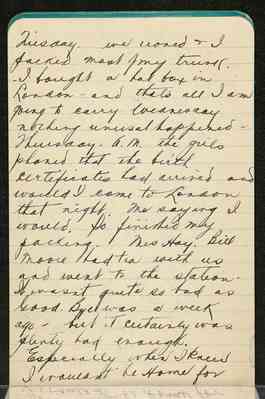 Tuesday. we ironed & I
packed most of my trunk.
I bought a hat box in
London - and thats all I am
going to carry Wednesday
nothing unusual happened -
Thursday. A.M. the girls
phoned that the birth
certificates had arrived and
would I come to London
that night. Me saying I
would. So finished my
packing. Mrs Hay, Bill
Moore had tea with us
and went to the station.
It wasnt quite so bad as
Good Bye was a week
ago - but it certainly was
plenty bad enough.
Especially when I knew
I wouldnt be Home for